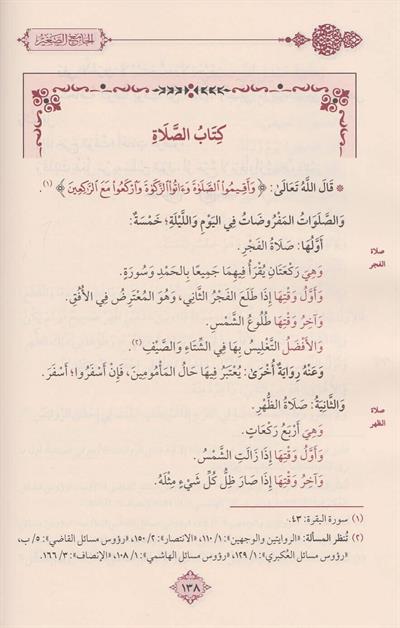 الجامع الصغير
كِتَابُ الصَّلَاةِ
* قَالَ اللَّهُ تَعَالَى: ﴿وَأَقِيمُوا الصَّلَوٰةَ وَءَاتُوا الزَّكَوٰةَ وَارْكَعُوا مَعَ الرَّٰكِعِينَ﴾ (١).
وَالصَّلَوَاتُ المَفْرُوضَاتُ فِي اليَوْمِ وَاللَّيْلَةِ؛ خَمْسَةٌ:
صلاة الفجر
أَوَّلُهَا: صَلَاةُ الفَجْرِ.
وَهِيَ رَكْعَتَانِ يُقْرَأُ فِيهِمَا جَمِيعًا بِالحَمْدِ وَسُورَةٍ.
وَأَوَّلُ وَقْتِهَا إِذَا طَلَعَ الفَجْرُ الثَّانِي، وَهُوَ المُعْتَرِضُ فِي الأُفُقِ.
وَآخِرُ وَقْتِهَا طُلُوعُ الشَّمْسِ.
وَالأَفْضَلُ التَّغْلِيسُ بِهَا فِي الشِّتَاءِ وَالصَّيْفِ (٢).
وَعَنْهُ رِوَايَةٌ أُخْرَى: يُعْتَبَرُ فِيهَا حَالُ المَأْمُومِينَ، فَإِنْ أَسْفَرُوا؛ أَسْفَرَ.
صلاة الظهر
وَالثَّانِيَةُ: صَلَاةُ الظُّهْرِ.
وَهِيَ أَرْبَعُ رَكَعَاتٍ.
وَأَوَّلُ وَقْتِهَا إِذَا زَالَتِ الشَّمْسُ.
وَآخِرُ وَقْتِهَا إِذَا صَارَ ظِلُّ كُلِّ شَيْءٍ مِثْلَهُ.
(١) سورة البقرة: ٤٣.
(٢) تُنظر المسألة: «الروايتين والوجهين»: ١/ ١١٠، «الانتصار»: ٢/ ١٥٠، «رؤوس مسائل القاضي»: ٥/ ب،
«رؤوس مسائل العُكبري»: ١/ ١٢٩، «رؤوس مسائل الهاشمي»: ١/ ١٠٨، «الإنصاف»: ٣/ ١٦٦.
١٣٨